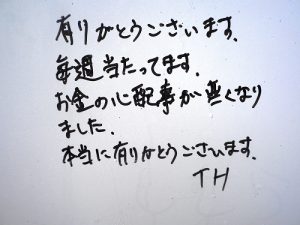 有りがとうございます.
毎週当たってます.
お金の心配事が無くなり
ました.
本当に有りがとうございます.
TH